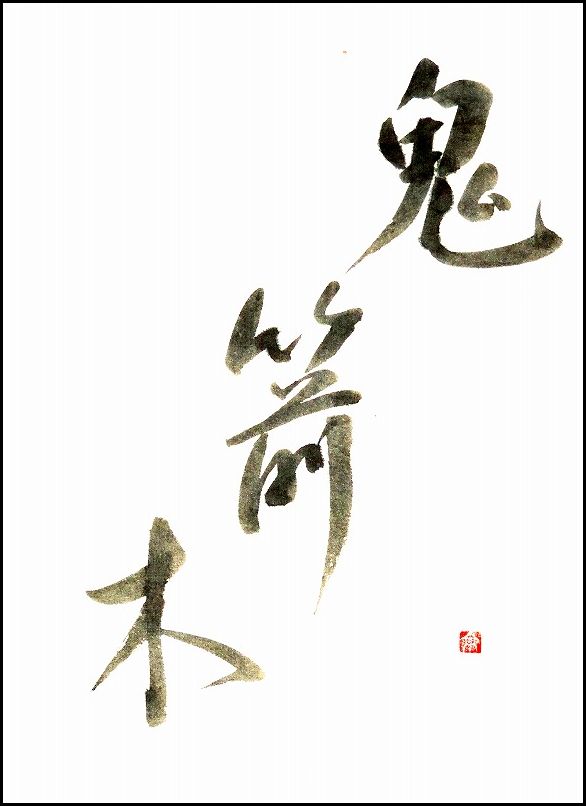 鬼箭木